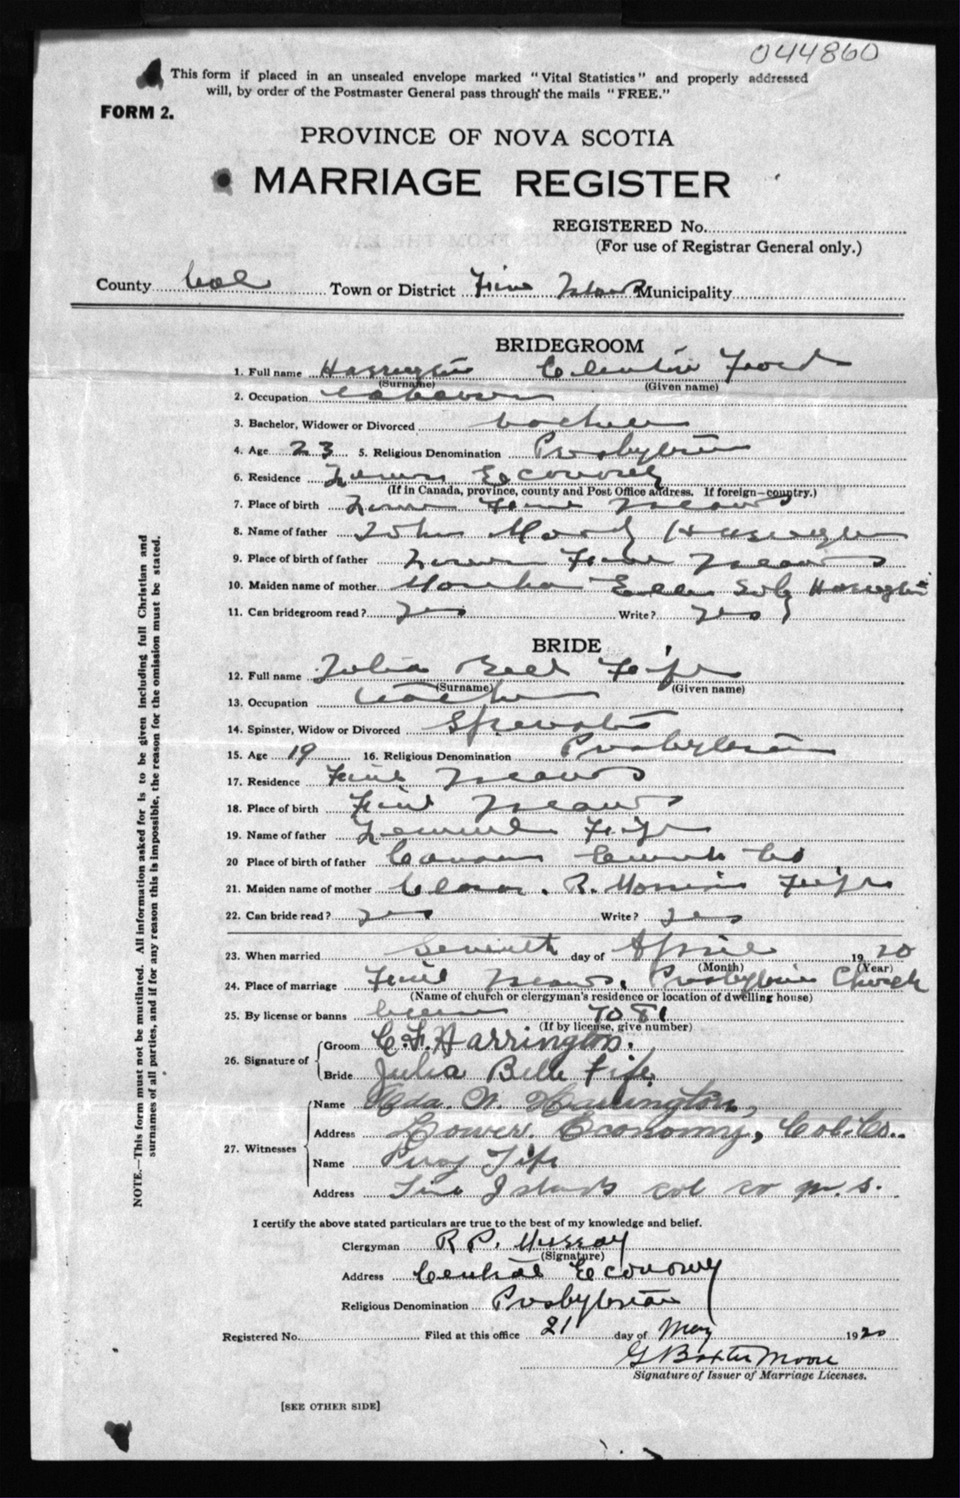 044860
This form if placed in an unsealed envelope marked "Vital Statistics" and properly addressed
will, by order of the Postmaster General pass through the mails "FREE."
FORM 2.
PROVINCE OF NOVA SCOTIA
MARRIAGE REGISTER
REGISTERED No.
(For use of Registrar General only.)
County Col Town or District Five Islands Municipality
BRIDEGROOM
1. Full name Harrington Clinton Ford
(Surname) (Given name)
2. Occupation Labourer
3. Bachelor, Widower or Divorced bachelor
4. Age 23 5. Religious Denomination Presbyterian
6. Residence Lower Economy
(If in Canada, province, county and Post Office address. If foreign—country.)
7. Place of birth Lower Five Islands
8. Name of father John Harrington
9. Place of birth of father Lower Five Islands
10. Maiden name of mother Ellen Harrington
11. Can bridegroom read? yes Write? yes
BRIDE
12. Full name Julia Bell Fife
(Surname) (Given name)
13. Occupation teacher
14. Spinster, Widow or Divorced Spinster
15. Age 19 16. Religious Denomination Presbyterian
17. Residence Five Islands
18. Place of birth Five Islands
19. Name of father Lemuel Fife
20 Place of birth of father Co
21. Maiden name of mother Clara R. Morrison Fife
22. Can bride read? yes Write? yes
23. When married seventh day of April 1920
(Month) (Year)
24. Place of marriage Five Islands, Presbyterian Church
(Name of church or clergyman's residence or location of dwelling house)
25. By license or banns license 7081
(If by license, give number)
26. Signature of
Groom C. F. Harrington.
Bride Julia Belle Fife
27. Witnesses
Name Ada. W. Harrington,
Address Lower. Economy, Col. Co..
Name Percy Fife
Address Five Islands col co n. s.
I certify the above stated particulars are true to the best of my knowledge and belief.
Clergyman R P. Murray
(Signature)
Address Central Economy
Religious Denomination Presbyterian
Registered No. Filed at this office 21 day of May 1920
G Baxter Moore
Signature of Issuer of Marriage Licenses.
[SEE OTHER SIDE]
NOTE.—This form must not be mutilated. All information asked for is to be given including full Christian and
surnames of all parties, and if for any reason this is impossible, the reason for the omission must be stated.